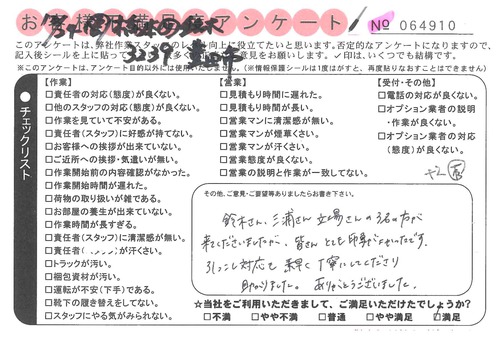 お客様 アンケート
№ 064910
このアンケートは、弊社作業スタッフの 向上に役立てたいと思います。否定的なアンケートになりますので、
記入後シールを上に貼って 多く 意見をお願いします。✓印は、いくつでも結構です。
※このアンケートは、アンケート目的以外には使用いたしません。(※情報保護シールは1度はがすと、再度貼りなおすことはできません)
3239
チェックリスト
【作業】
□責任者の対応(態度)が良くない。
□他のスタッフの対応(態度)が良くない。
□作業を見ていて不安がある。
□責任者(スタッフ)に好感が持てない。
□お客様への挨拶が出来ていない。
□ご近所への挨拶・気遣いが無い。
□作業開始前の内容確認がなかった。
□作業開始時間が遅れた。
□荷物の取り扱いが雑である。
□お部屋の養生が出来ていない。
□作業時間が長すぎる。
□責任者(スタッフ)に清潔感が無い。
□責任者( )が汗くさい。
□トラックが汚い。
□梱包資材が汚い。
□運転が不安(下手)である。
□靴下の履き替えをしてない。
□スタッフにやる気がみられない。
【営業】
□見積もり時間に遅れた。
□見積もり時間が長い。
□営業マンに清潔感が無い。
□営業マンが煙草くさい。
□営業マンが汗くさい。
□営業態度が良くない。
□営業の説明と作業が一致してない。
【受付・その他】
□電話の対応が良くない。
□オプション業者の説明
・作業が良くない。
□オプション業者の対応
(態度)が良くない。
その他、ご意見・ご要望等ありましたらお書き下さい。
鈴木さん、三浦さん 立場さんの3名の方が
来てくださいましたが、皆さん とても印象がよかったです。
引っこし対応も 素早く 丁寧にしてくださり
助かりました。 ありがとうございました。
☆当社をご利用いただきまして、ご満足いただけたでしょうか?
□不満 □やや不満 □普通 □やや満足 □満足